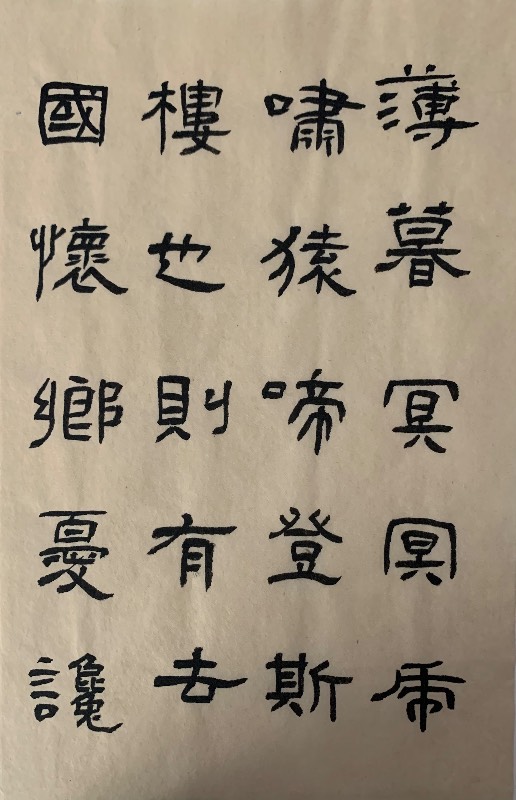 薄暮冥冥虎
嘯猿啼登斯
樓也則有去
國懷鄉憂讒